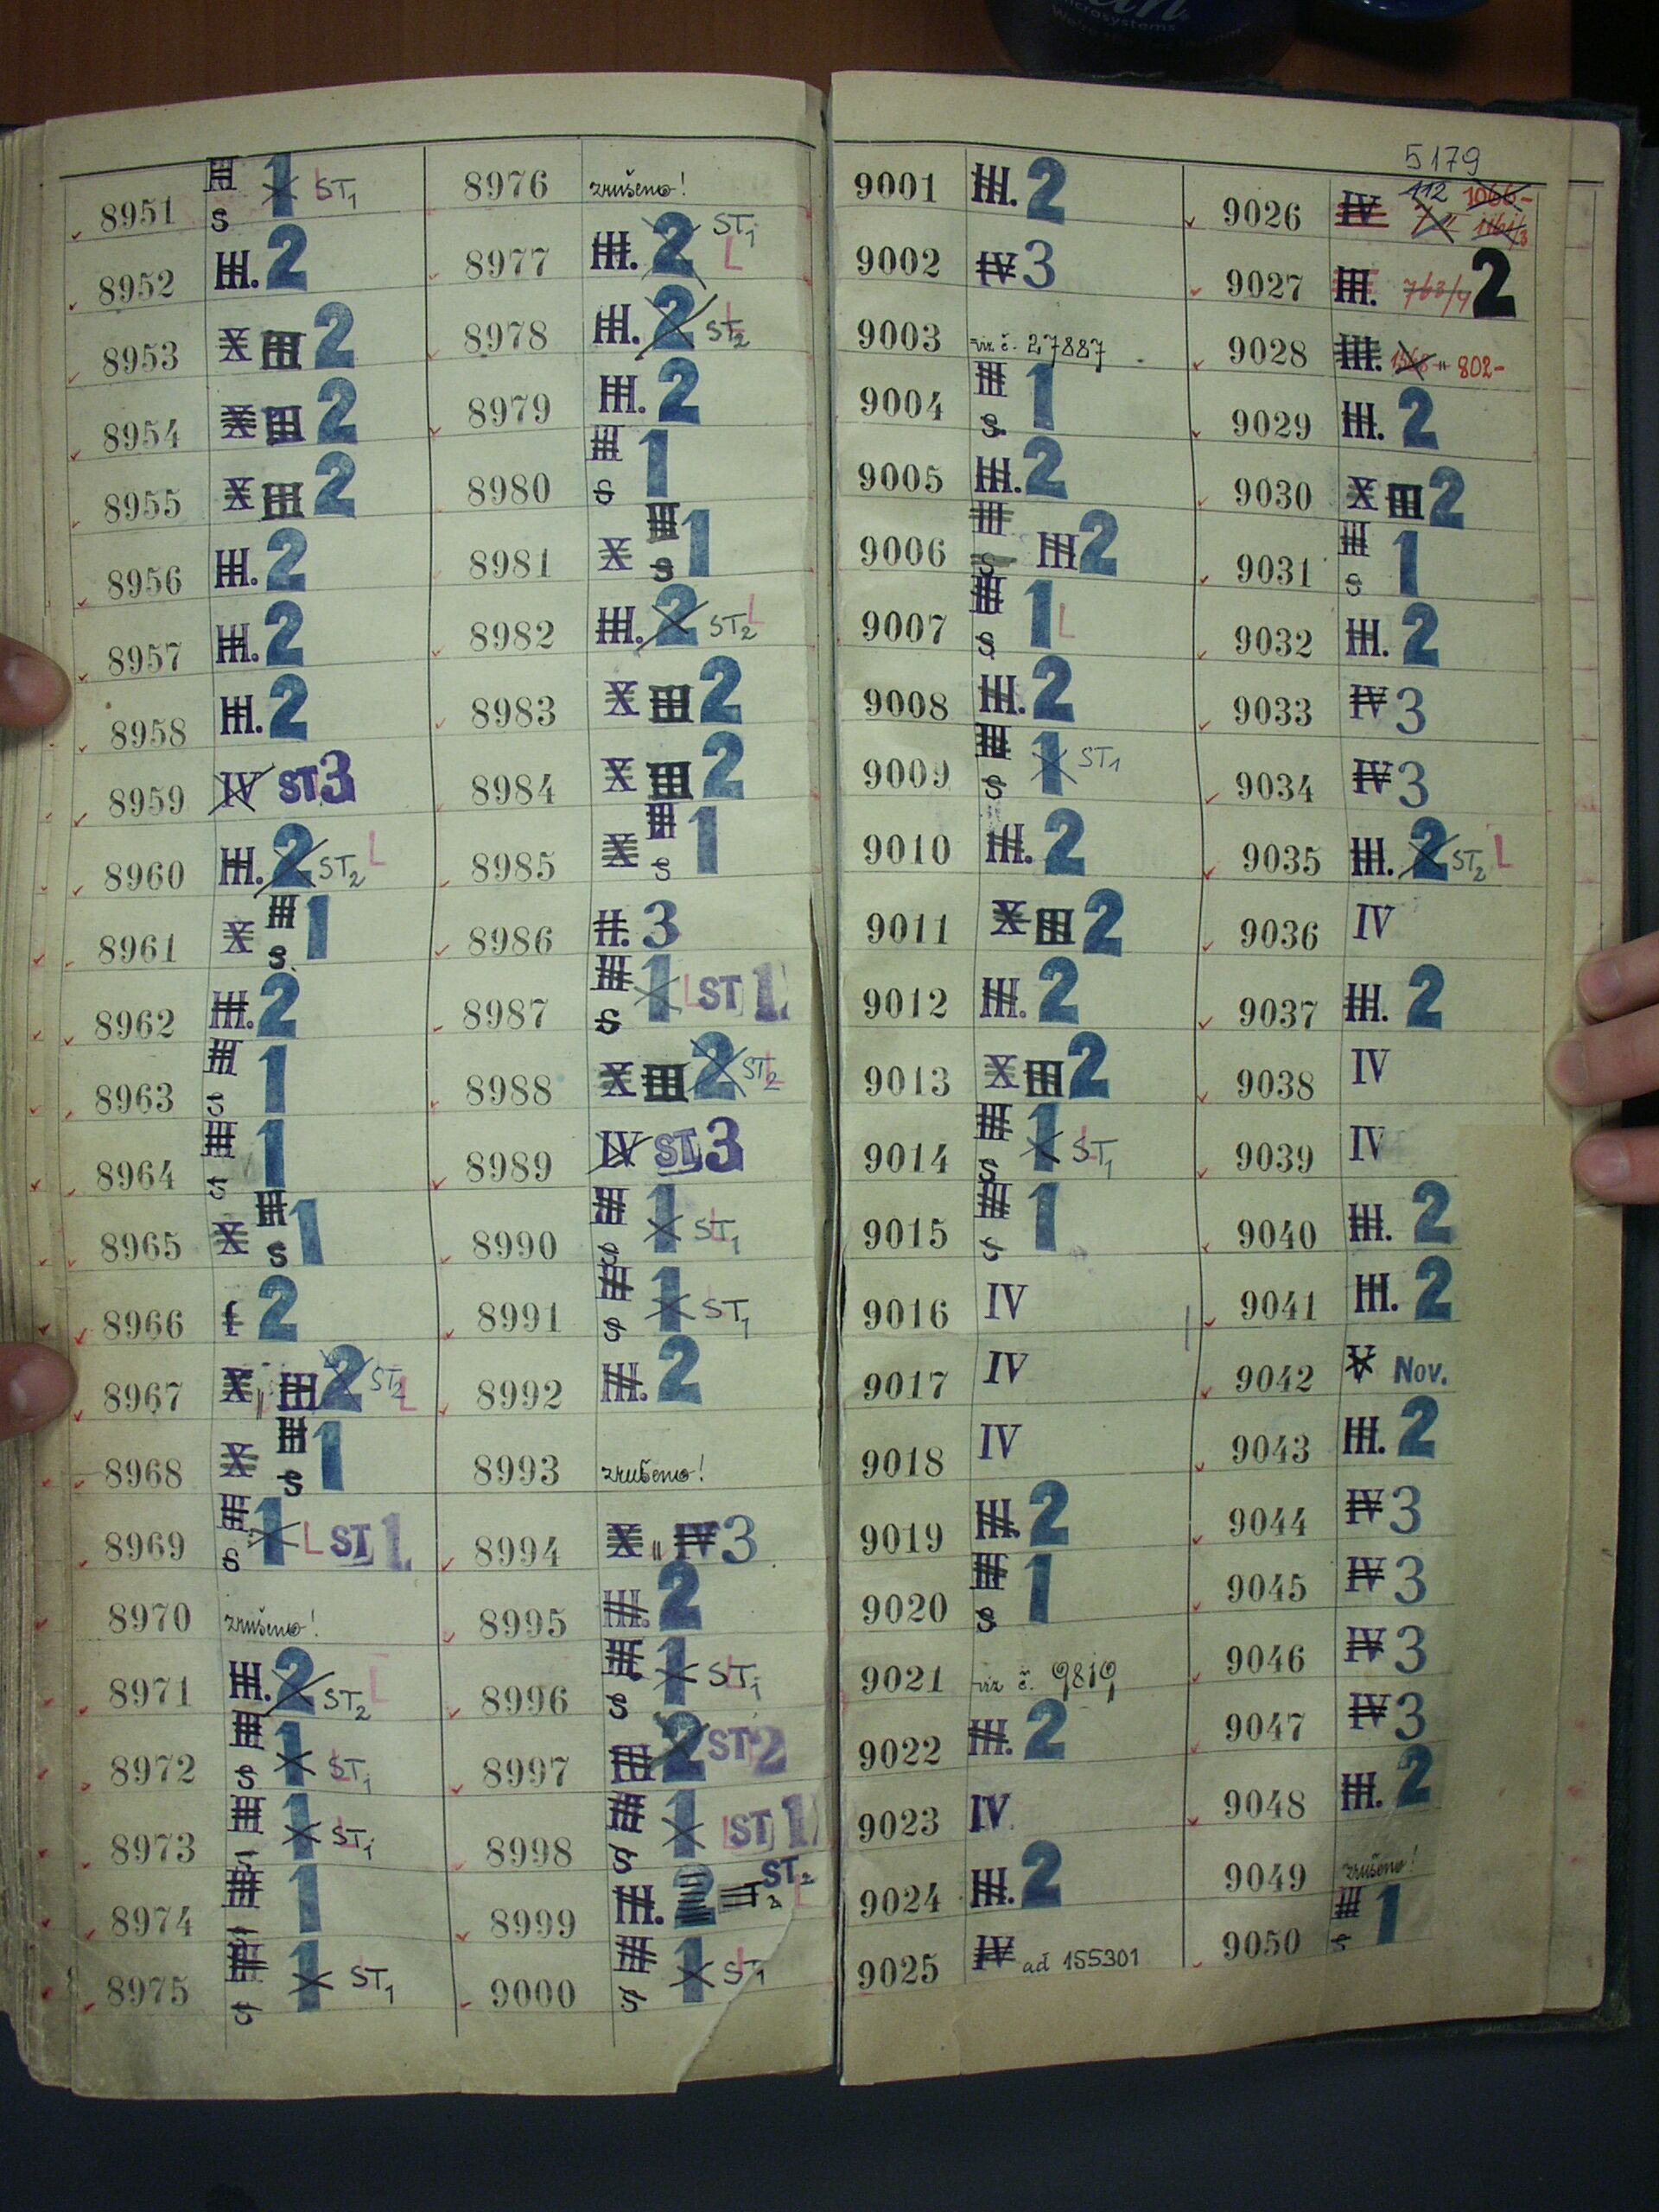 Microsystems
8951 III S 1 ST1
8952 III. 2
8953 X III 2
8954 X III 2
8955 X III 2
8956 III. 2
8957 III. 2
8958 III. 2
8959 IV ST3
8960 III. 2 ST2 L
8961 X III S 1
8962 III. 2
8963 III S 1
8964 III S 1
8965 X III S 1
8966 f 2
8967 X III 2 ST2 L
8968 X III S 1
8969 III S 1 L ST 1
8970 zrušeno!
8971 III. 2 ST2 L
8972 III S 1 ST1
8973 III S 1 ST1
8974 III S 1
8975 III S 1 ST1
8976 zrušeno!
8977 III. 2 ST1 L
8978 III. 2 ST2
8979 III. 2
8980 III S 1
8981 X III S 1
8982 III. 2 ST2 L
8983 X III 2
8984 X III 2
8985 X III S 1
8986 II. 3
8987 III S 1 L ST 1
8988 X III 2 ST2
8989 IV ST 3
8990 III S 1 ST1
8991 III S 1 ST1
8992 III. 2
8993 zrušeno!
8994 X " IV 3
8995 III. 2
8996 III S 1 ST1
8997 III 2 ST2
8998 III S 1 ST 1
8999 III. 2 ST2
9000 III S 1 ST1
9001 III. 2
9002 IV 3
9003 viz č. 27887
9004 III S 1
9005 III. 2
9006 III S III 2
9007 III S 1 L
9008 III. 2
9009 III S 1 ST1
9010 III. 2
9011 X III 2
9012 III. 2
9013 X III 2
9014 III S 1 ST1
9015 III S 1
9016 IV
9017 IV
9018 IV
9019 III. 2
9020 III S 1
9021 viz č. 9819
9022 III. 2
9023 IV
9024 III. 2
9025 IV ad 155301
5179
9026 IV 112 1066-
9027 III. 763/4 2
9028 III. 802-
9029 III. 2
9030 X III 2
9031 III S 1
9032 III. 2
9033 IV 3
9034 IV 3
9035 III. 2 ST2 L
9036 IV
9037 III. 2
9038 IV
9039 IV
9040 III. 2
9041 III. 2
9042 V Nov.
9043 III. 2
9044 IV 3
9045 IV 3
9046 IV 3
9047 IV 3
9048 III. 2
9049 zrušeno!
9050 III S 1